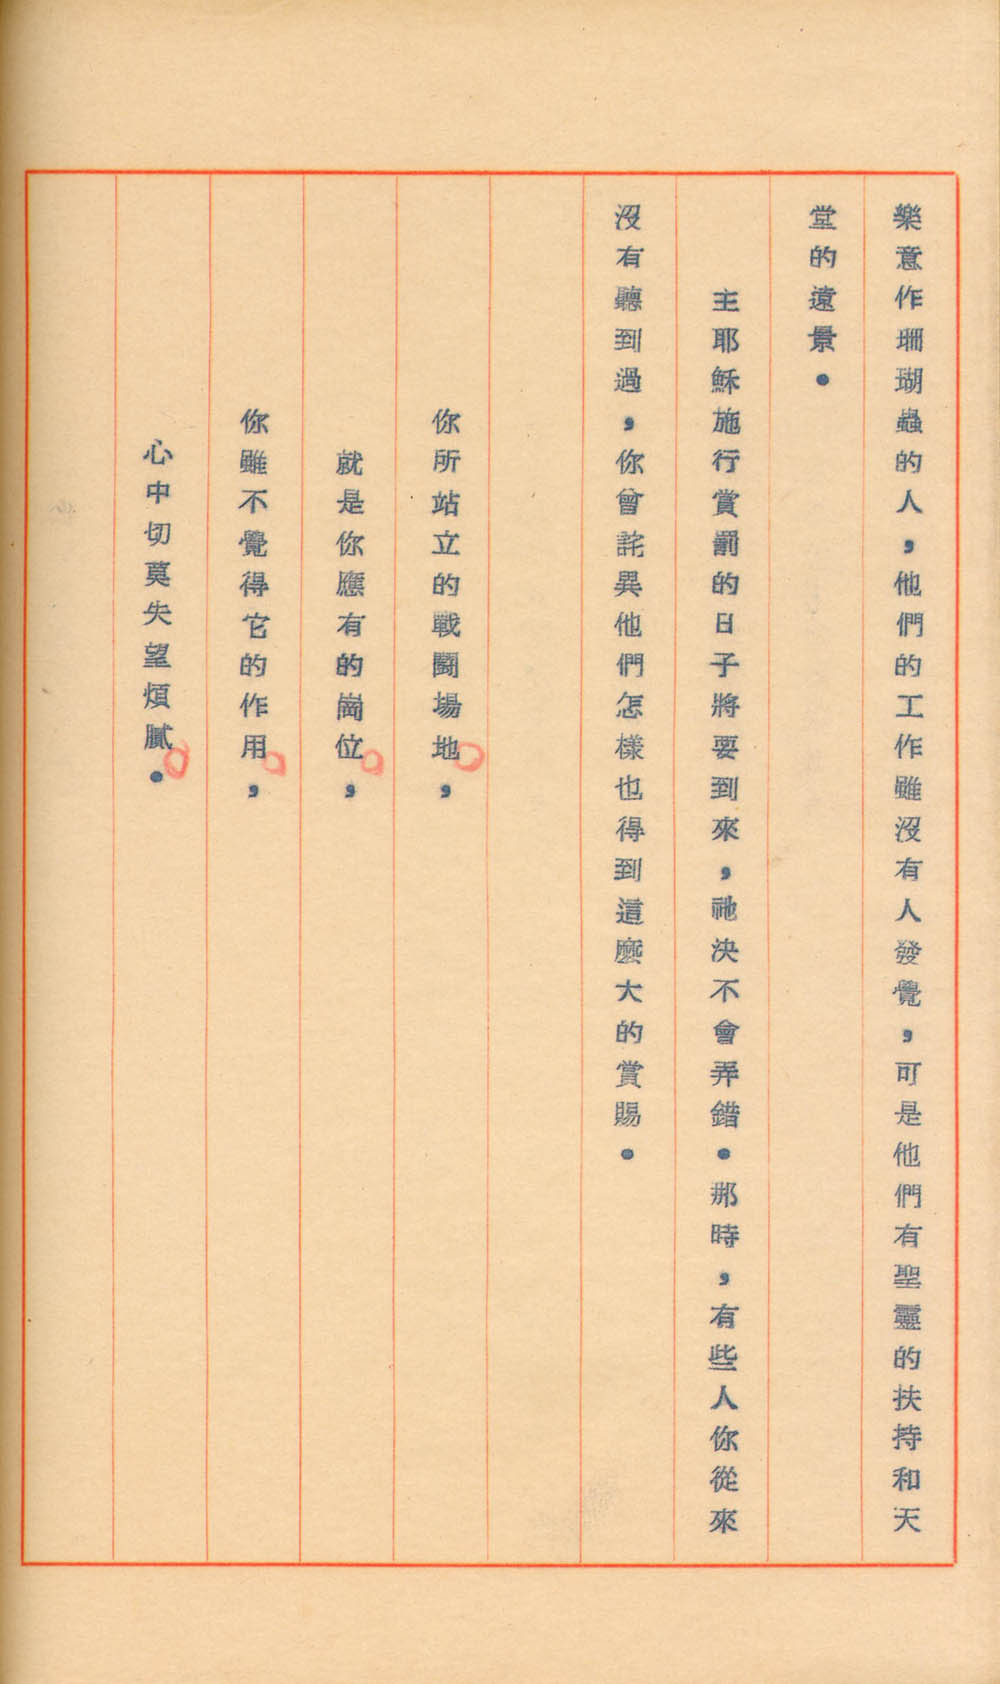 樂意作珊瑚蟲的人，他們的工作雖沒有人發覺，可是他們有聖靈的扶持和天
堂的遠景．
主耶穌施行賞罰的日子將要到來，祂決不會弄錯．那時，有些人你從來
沒有聽到過，你會詫異他們怎樣也得到這麼大的賞賜．
你所站立的戰鬪場地，
就是你應有的崗位，
你雖不覺得它的作用，
心中切莫失望煩膩．